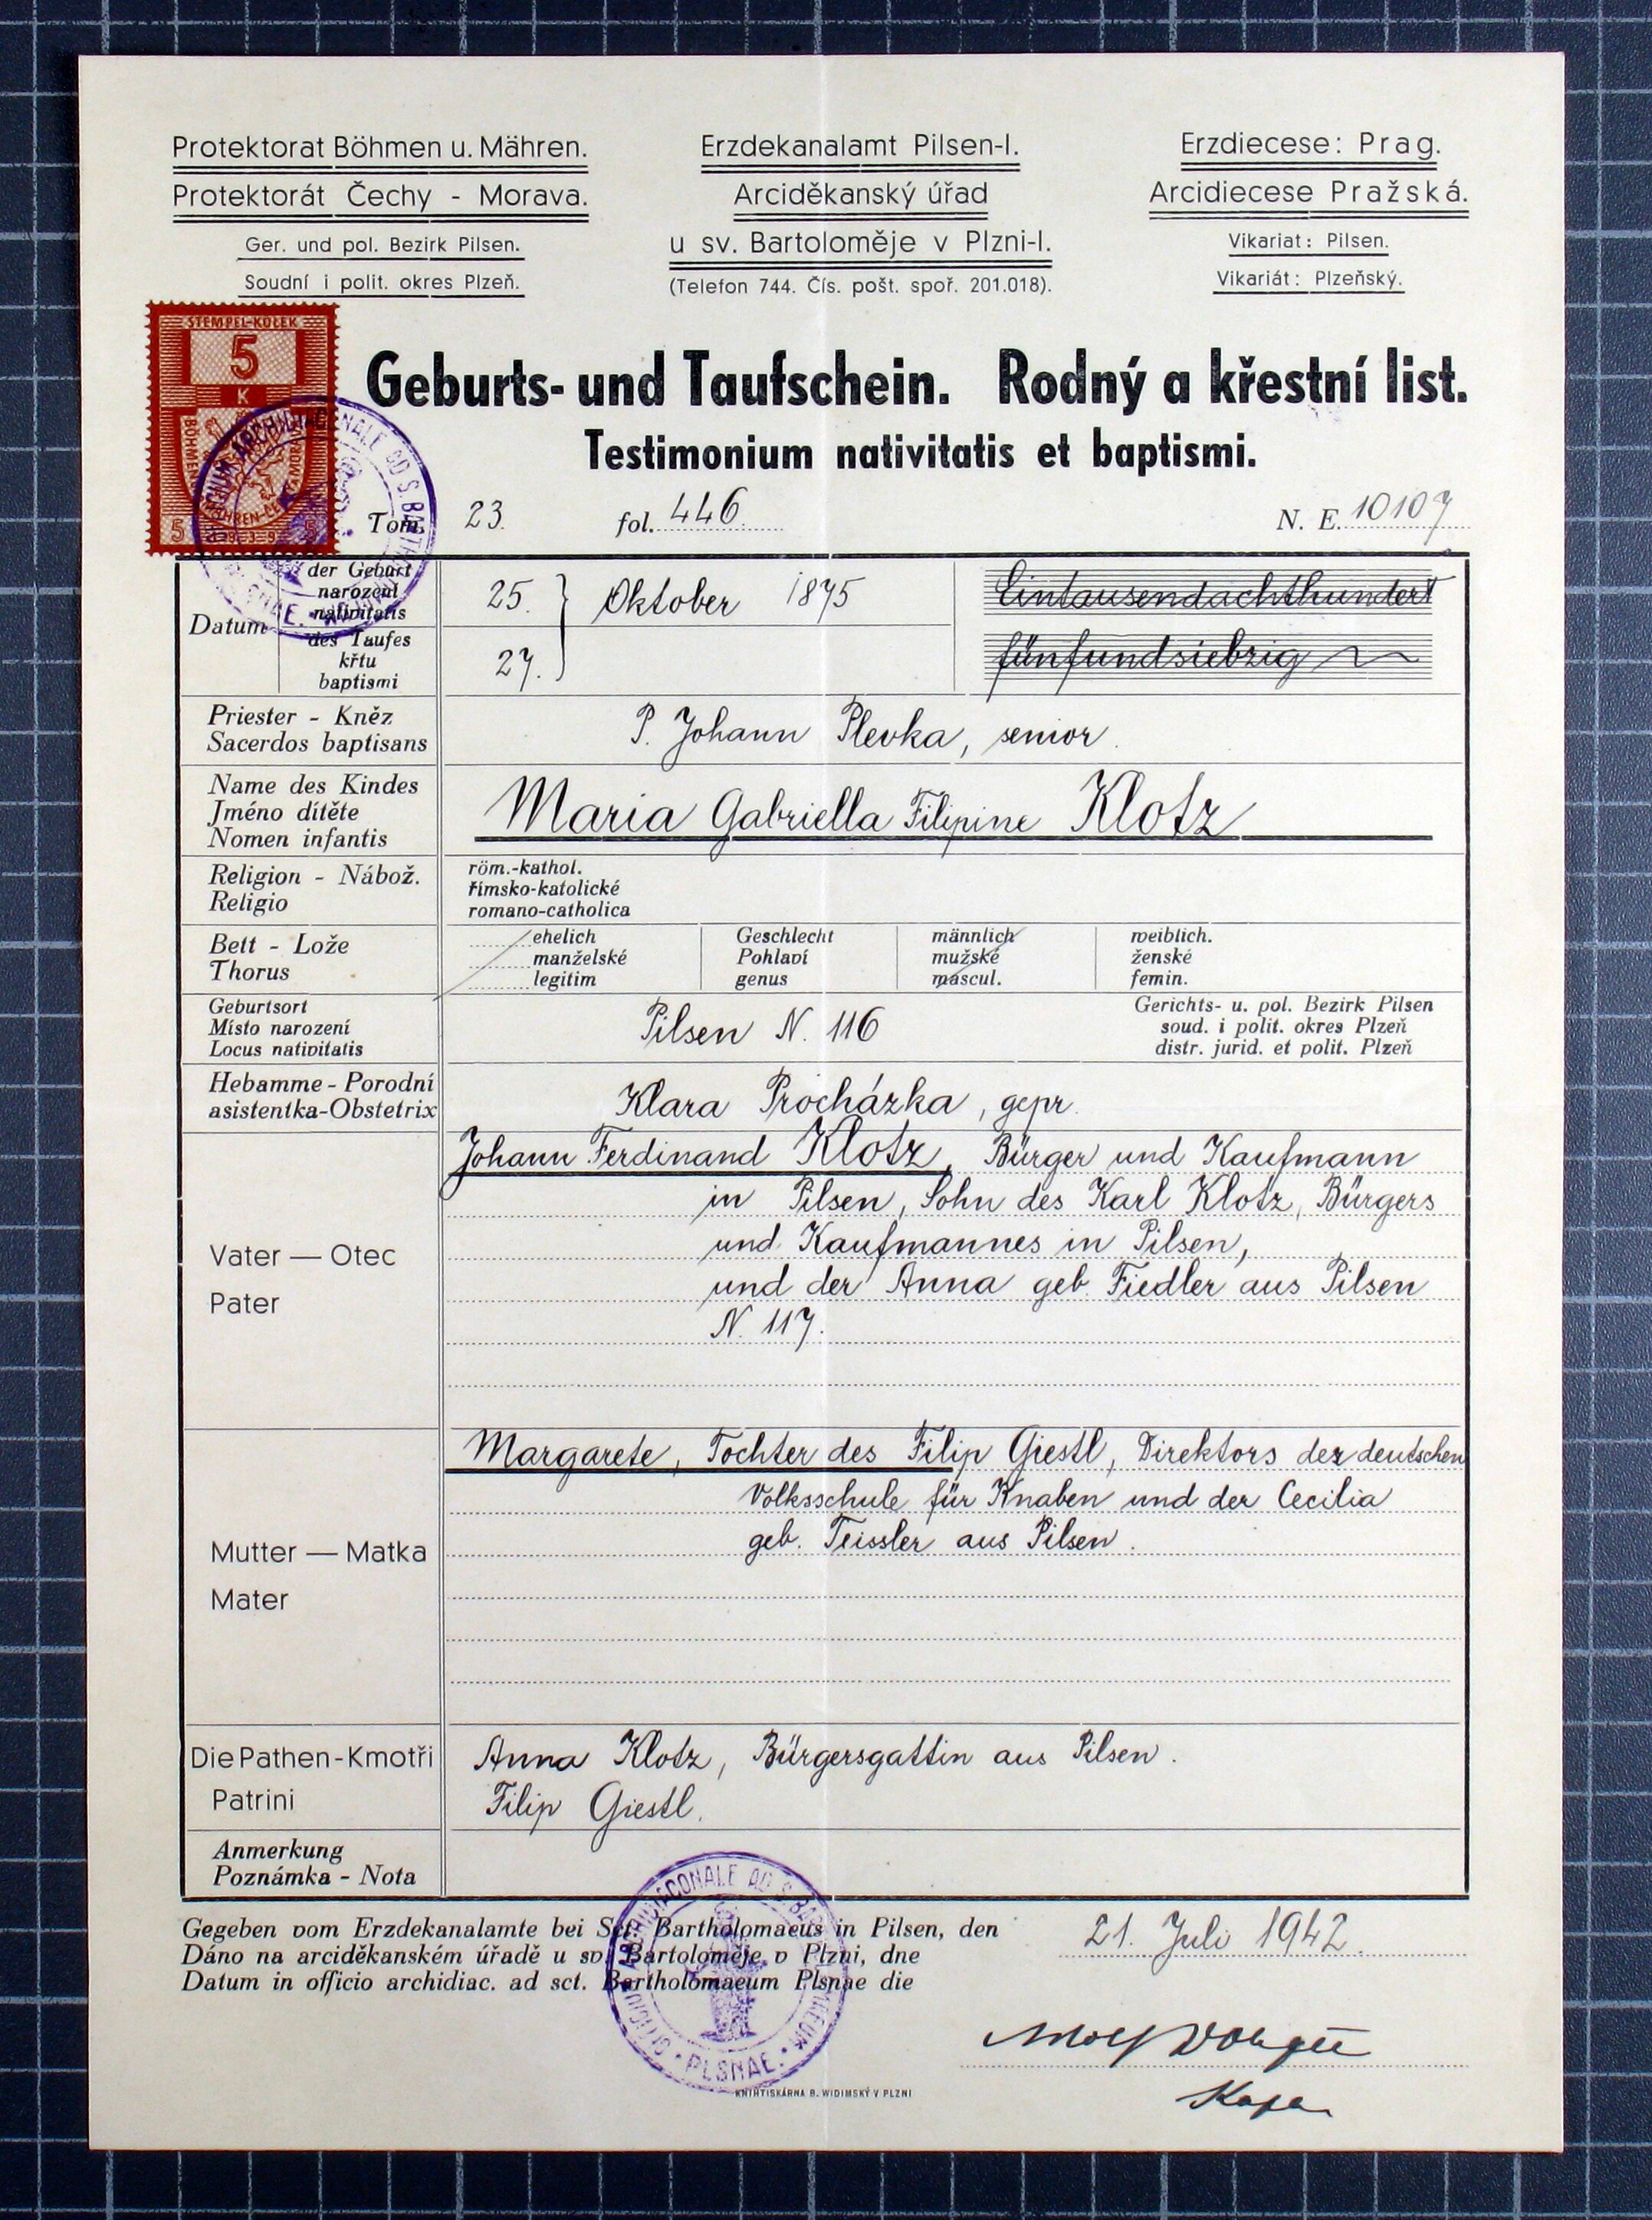 Protektorat Böhmen u. Mähren.
Protektorát Čechy - Morava.
Ger. und pol. Bezirk Pilsen.
Soudní i polit. okres Plzeň.
Erzdekanalamt Pilsen-I.
Arciděkanský úřad
u sv. Bartoloměje v Plzni-I.
(Telefon 744. Čís. pošt. spoř. 201.018).
Erzdiecese: Prag.
Arcidiecese Pražská.
Vikariat: Pilsen.
Vikariát: Plzeňský.
STEMPEL-KOLEK
5
K
Geburts- und Taufschein. Rodný a křestní list.
Testimonium nativitatis et baptismi.
Tom. 23. fol. 446. N. E. 10107
Datum
der Geburt
narození
nativitatis
des Taufes
křtu
baptismi
25. } Oktober 1875
27.
Eintausendachthundert
fünfundsiebzig
Priester - Kněz
Sacerdos baptisans
P. Johann Plevka, senior.
Name des Kindes
Jméno dítěte
Nomen infantis
Maria Gabriella Filipine Klotz
Religion - Nábož.
Religio
röm.-kathol.
římsko-katolické
romano-catholica
Bett - Lože
Thorus
ehelich
manželské
legitim
Geschlecht
Pohlaví
genus
männlich
mužské
mascul.
weiblich.
ženské
femin.
Geburtsort
Místo narození
Locus nativitatis
Pilsen N. 116
Gerichts- u. pol. Bezirk Pilsen
soud. i polit. okres Plzeň
distr. jurid. et polit. Plzeň
Hebamme - Porodní
asistentka-Obstetrix
Klara Procházka, gepr.
Vater — Otec
Pater
Johann Ferdinand Klotz, Bürger und Kaufmann
in Pilsen, Sohn des Karl Klotz, Bürgers
und Kaufmannes in Pilsen,
und der Anna geb. Fiedler aus Pilsen
N. 117.
Mutter — Matka
Mater
Margarete, Tochter des Filip Giestl, Direktors der deutschen
Volksschule für Knaben und der Cecilia
geb. Teissler aus Pilsen.
Die Pathen - Kmotři
Patrini
Anna Klotz, Bürgersgattin aus Pilsen.
Filip Giestl.
Anmerkung
Poznámka - Nota
Gegeben vom Erzdekanalamte bei Sct. Bartholomaeus in Pilsen, den
Dáno na arciděkanském úřadě u sv. Bartoloměje v Plzni, dne
Datum in officio archidiac. ad sct. Bartholomaeum Plsnae die
21. Juli 1942.
OFFICIUM ARCHIDIACONALE AD S. BARTHOLOMAEUM
PLSNAE.
KNIHTISKÁRNA B. WIDIMSKÝ V PLZNI